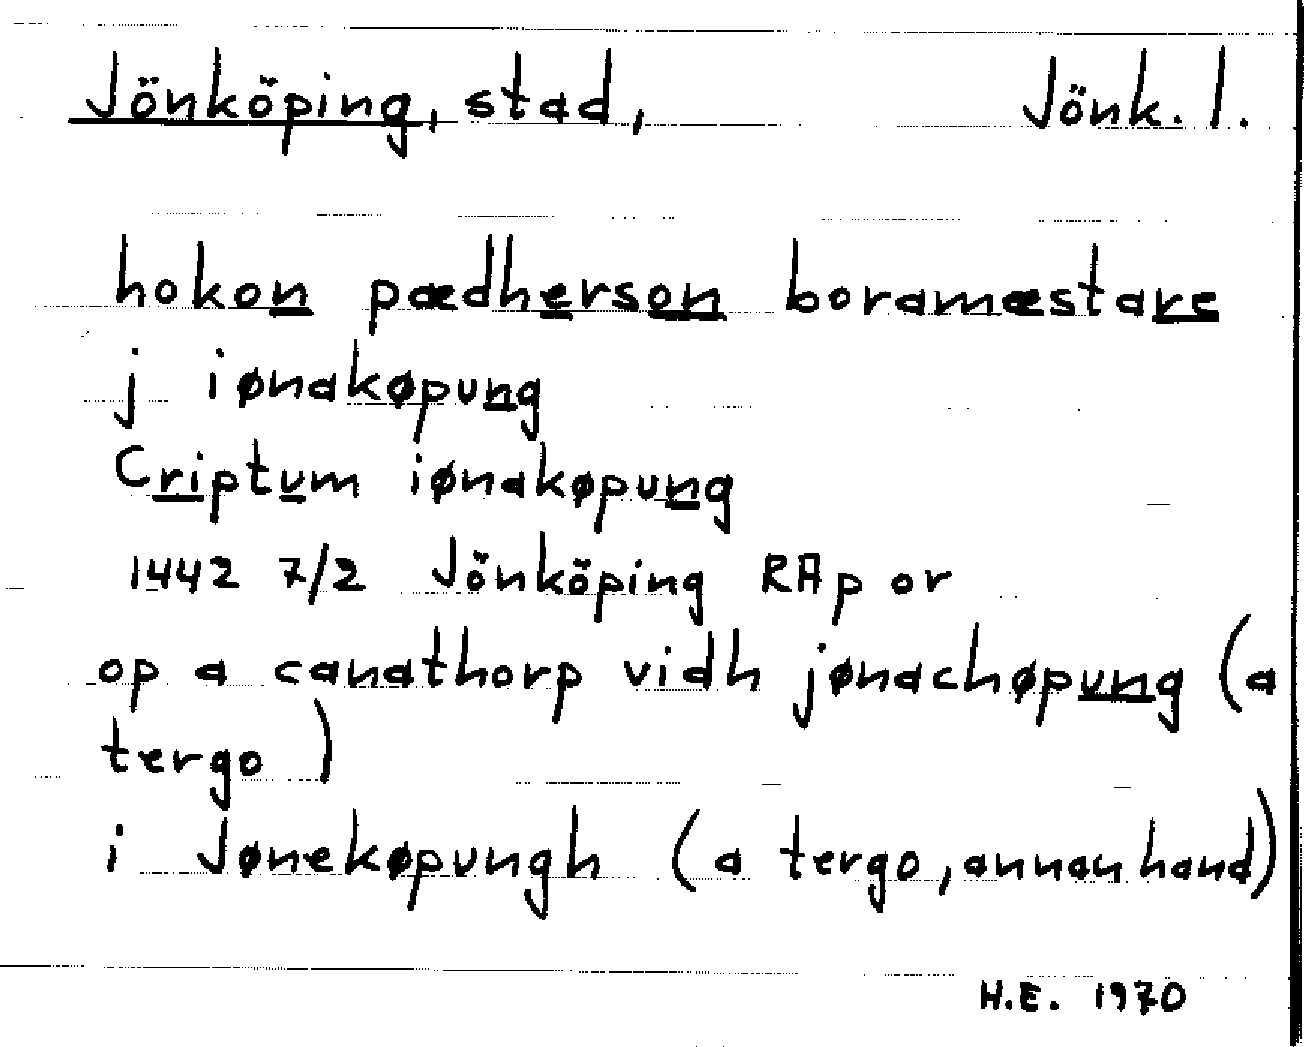 Jönköping, stad, Jönk. l.
hokon pædherson boramæstare
j iønakøpung
Criptum iønakøpung
1442 7/2 Jönköping RAp or
op a canathorp vidh jønachøpung (a
tergo )
i Jønekøpungh (a tergo, annan hand)
H.E. 1970